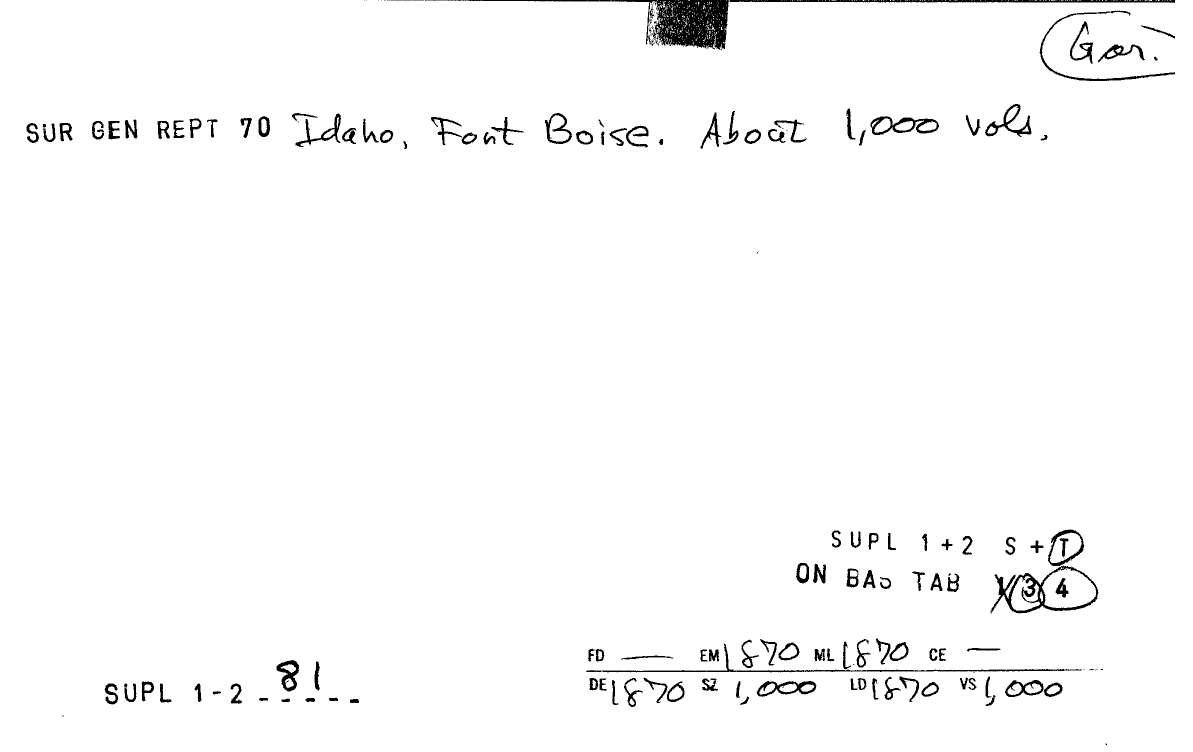 Gar.
SUR GEN REPT 70 Idaho, Fort Boise. About 1,000 vols.
SUPL 1+2 S+T
ON BAS TAB 1 3 4
FD — EM 1870 ML 1870 CE —
DE 1870 SZ 1,000 LD 1870 VS 1,000
SUPL 1-2 - 81 - - - -